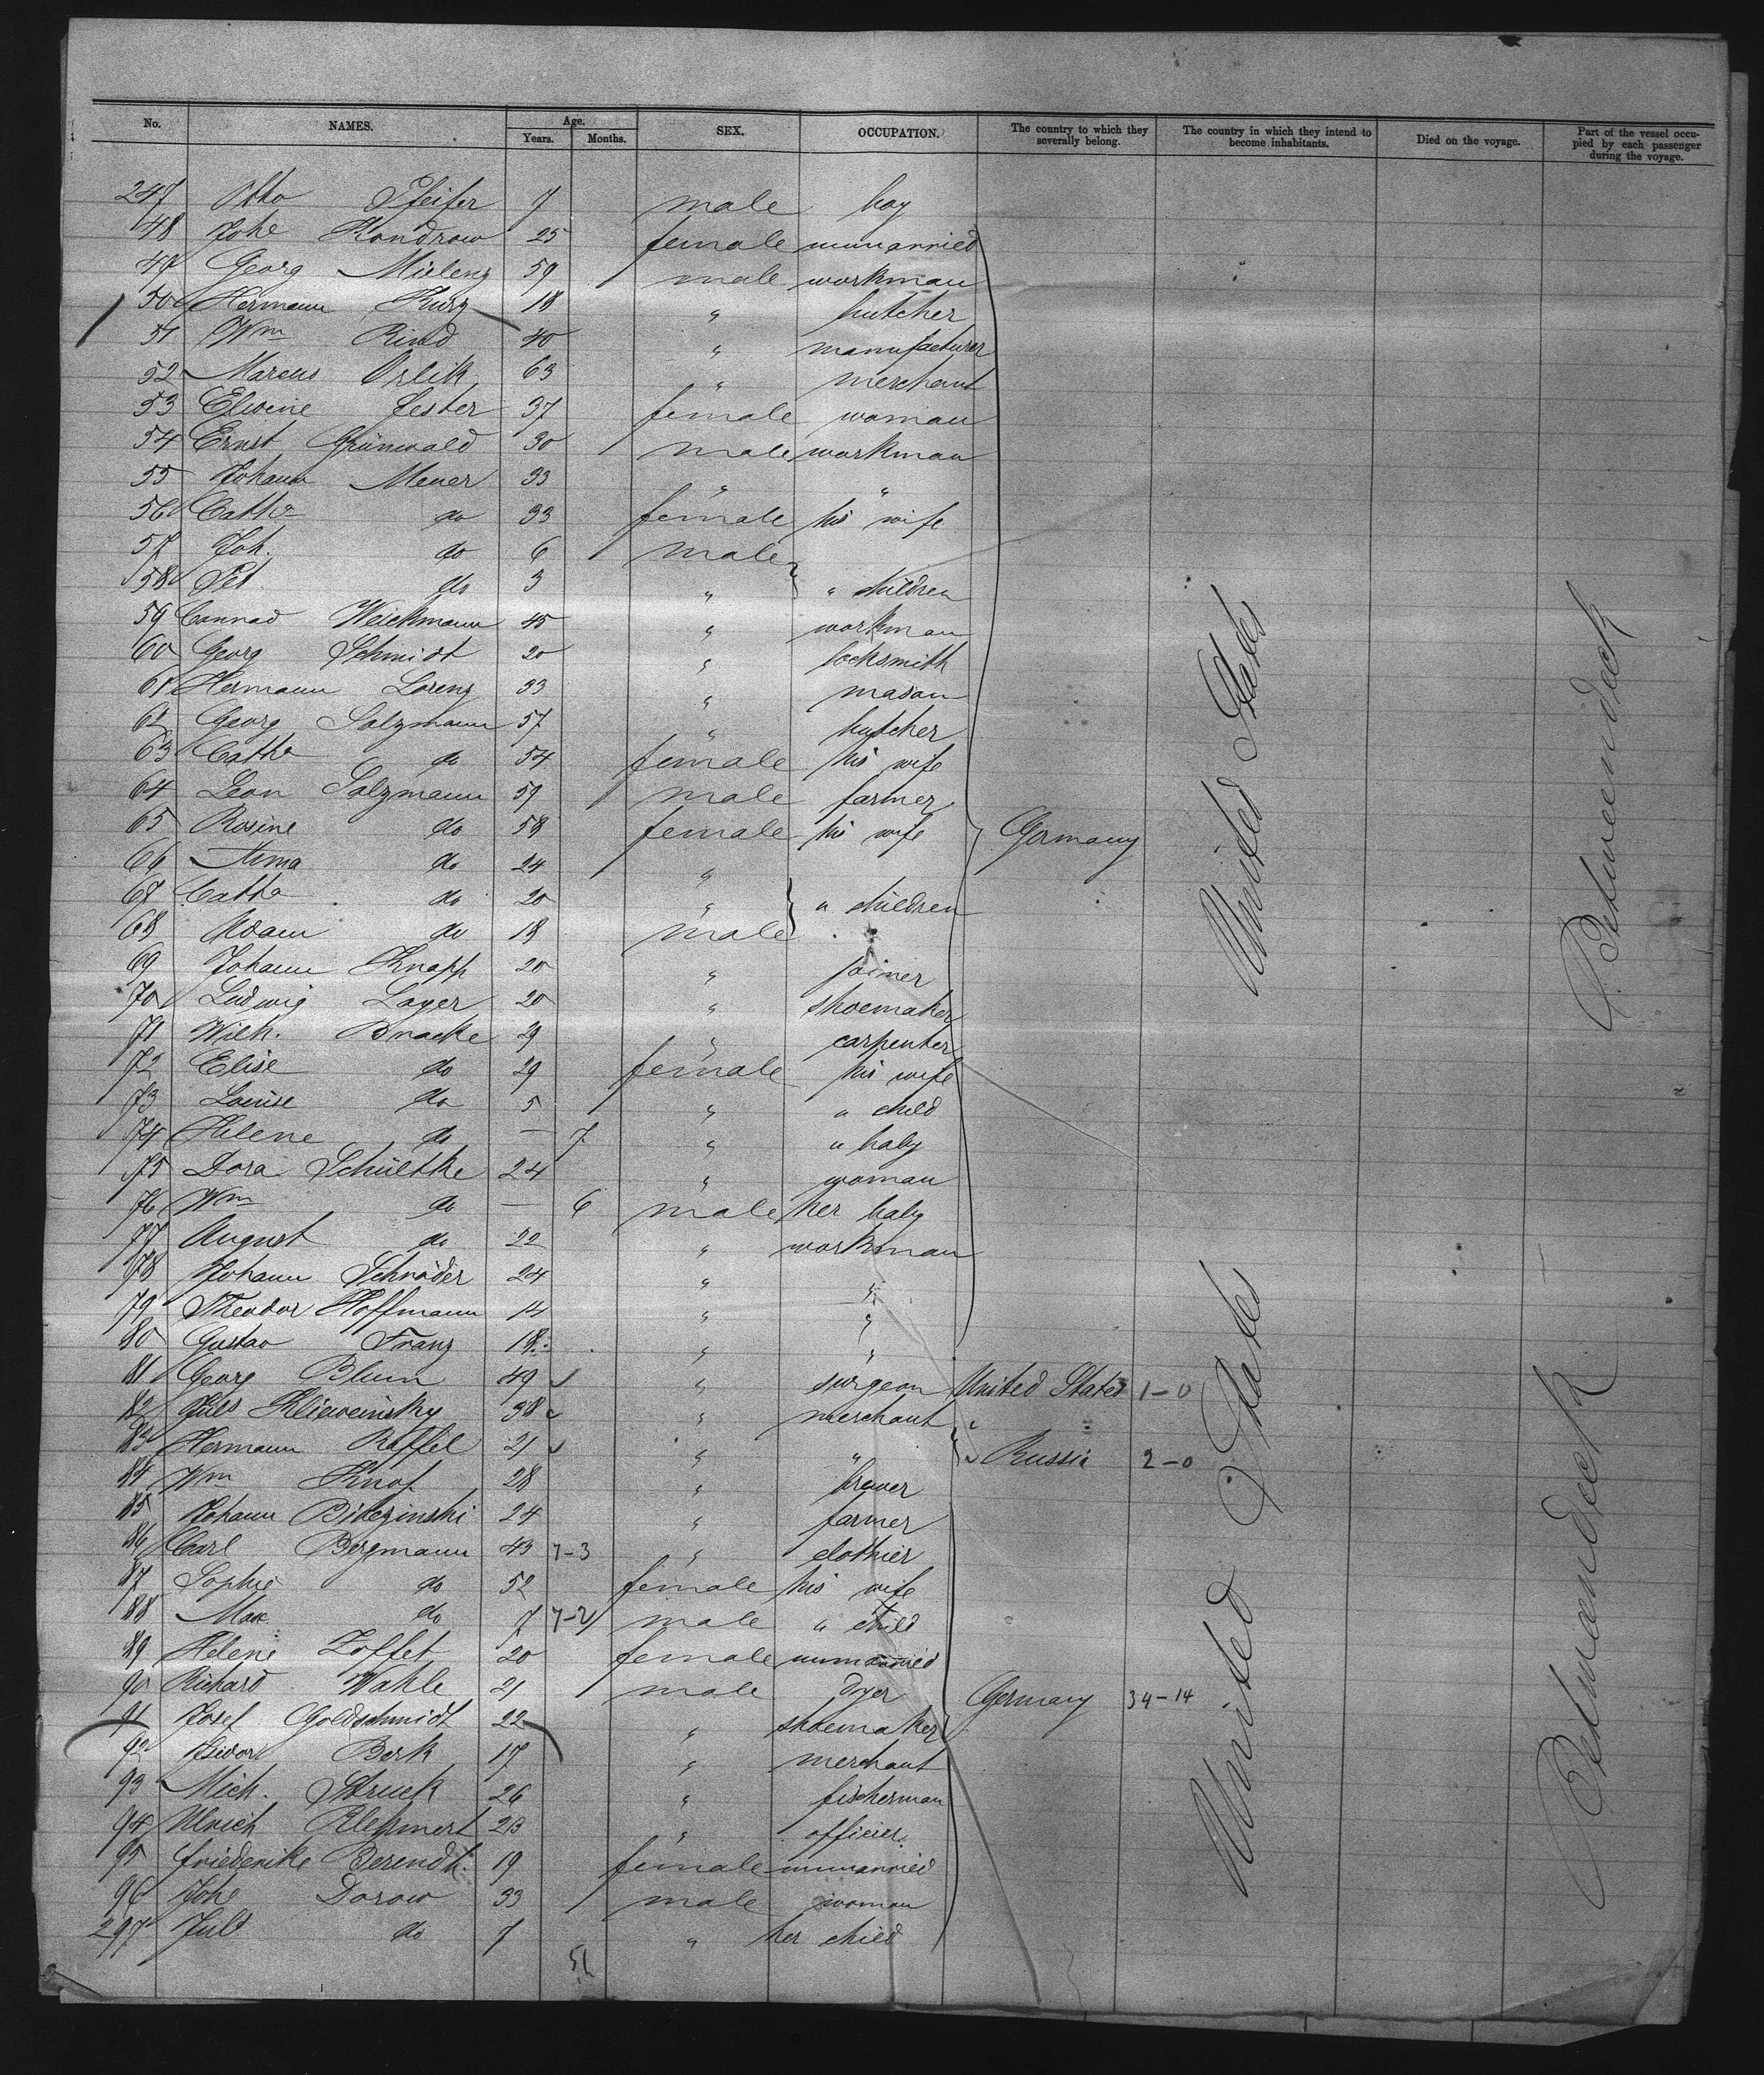 No. NAMES. Age. Years. Months. SEX. OCCUPATION. The country to which they severally belong. The country in which they intend to become inhabitants. Died on the voyage. Part of the vessel occupied by each passenger during the voyage.
247 Otto Pfeifer 7 male boy
48 Johe Kondrow 25 female unmarried
49 Georg Mielenz 59 male workman
50 Hermann Kurz 18 " butcher
51 Wm Rind 40 " manufacturer
52 Marcus Orlik 63 " merchant
53 Elwine Lester 37 female woman
54 Ernst Grünwald 30 male workman
55 Johann Meuer 33 " "
56 Catha do 33 female his wife
57 Joh. do 6 male
58 Pet. do 3 " " children
59 Connad Weickmann 45 " workman
60 Georg Schmidt 20 " locksmith
61 Hermann Lorenz 33 " mason
62 Georg Salzmann 57 " butcher
63 Catha do 54 female his wife
64 Leon Salzmann 59 male farmer
65 Rosine do 58 female his wife Germany United States Betweendeck
66 Anna do 24 "
67 Catha do 20 " " children
68 Adam do 18 male
69 Johann Knapp 20 " joiner
70 Ludwig Layer 20 " shoemaker
71 Wilh. Bnacke 29 " carpenter
72 Elise do 29 female his wife
73 Louise do 5 " " child
74 Helene do — 7 " " baby
75 Dora Schültke 24 " woman
76 Wm do — 6 male her baby
77 August do 22 " workman
78 Johann Schröder 24 " "
79 Theodor Hoffmann 14 " "
80 Gustav Franz 18 " "
81 Georg Blum 49 " surgeon United States 1-0
82 Juls Klieweinsky 38 " merchant
83 Hermann Raffel 21 " " Russia 2-0
84 Wm Knof 28 " brewer
85 Johann Bidezinski 24 " farmer
86 Carl Bergmann 43 7-3 " clothier
87 Sophie do 52 female his wife
88 Max do 7 7-2 male " child
89 Helene Loffet 20 female unmarried
90 Richard Wahle 21 male dyer Germany 34-14 United States Betweendeck
91 Josef Goldschmidt 22 " shoemaker
92 Isidor Berk 17 " merchant
93 Mich. Struck 26 " fischerman
94 Ulrich 23 " officier
95 Friederike Berendt. 19 female unmarried
96 Johe Dorow 33 male woman
297 Juls do 7 " her child
51